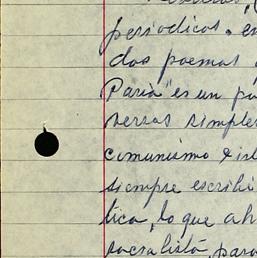 periodicos. en
dos poemas
Paria" es un
versos simples
comunismo e
siempre escribi
tica, lo que ah
socialista, para